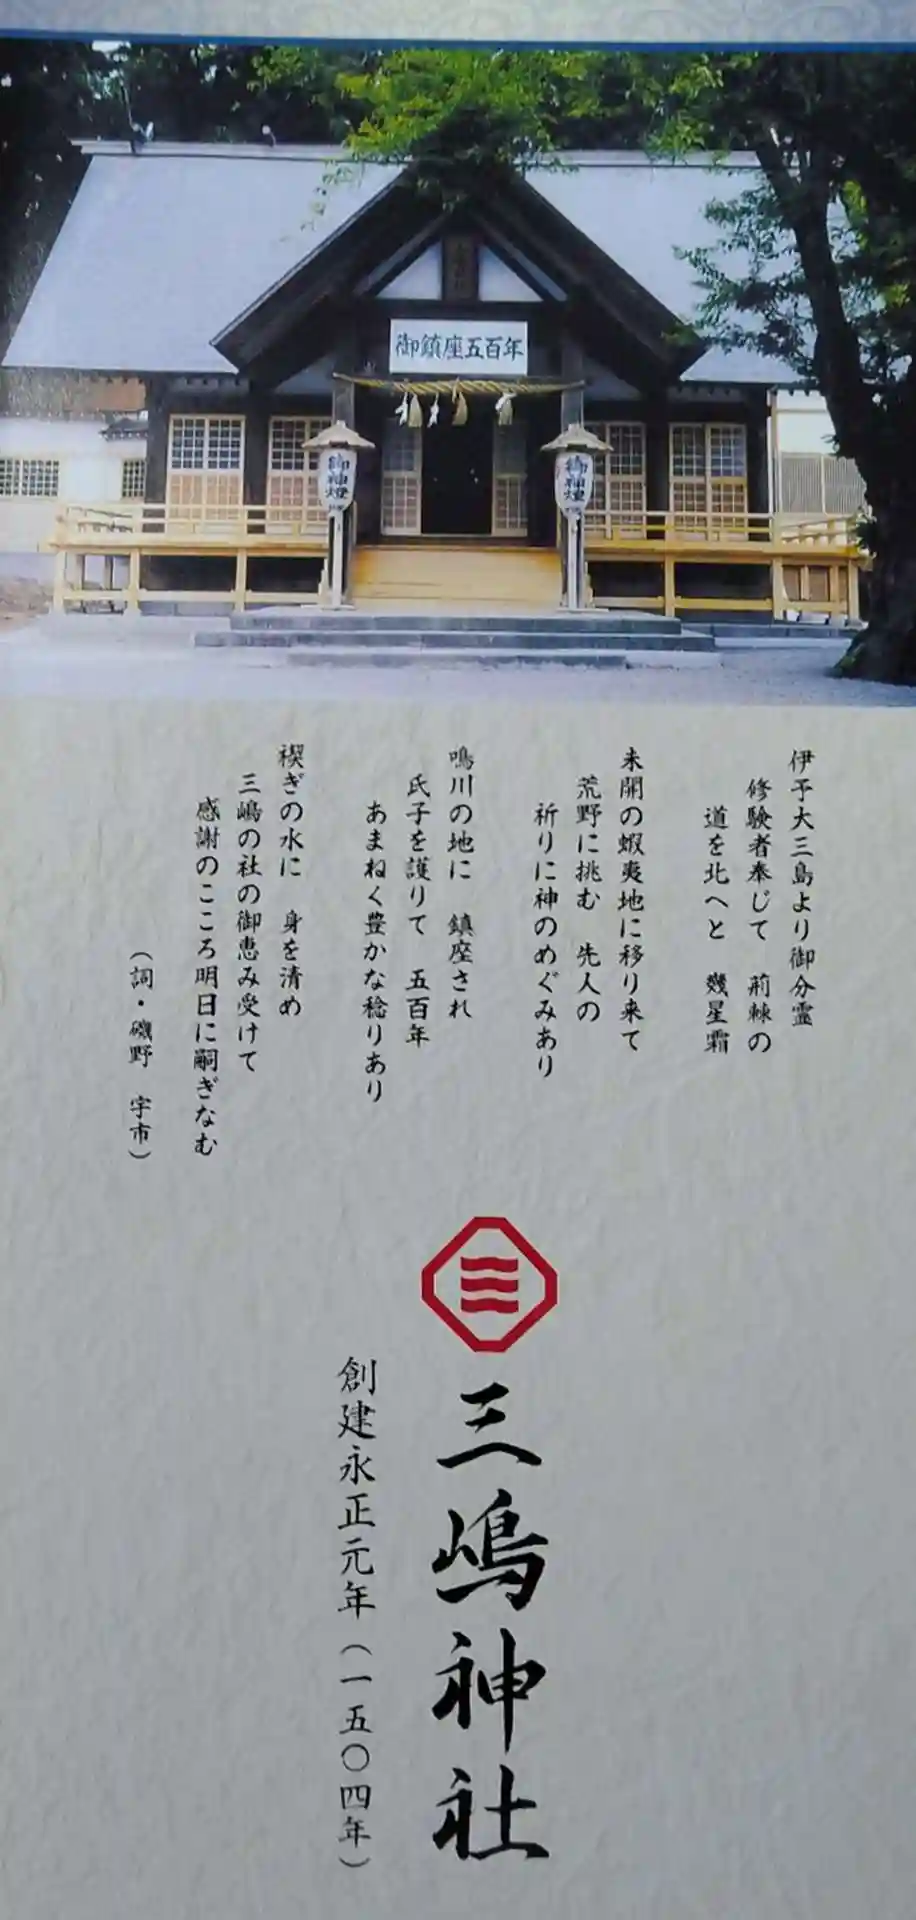 御鎮座五百年
御神燈
御神燈
伊予大三島より御分霊
修験者奉じて 荊棘の
道を北へと 幾星霜
未開の蝦夷地に移り来て
荒野に挑む 先人の
祈りに神のめぐみあり
鳴川の地に 鎮座され
氏子を護りて 五百年
あまねく豊かな稔りあり
禊ぎの水に 身を清め
三嶋の社の御恵み受けて
感謝のこころ明日に嗣ぎなむ
（詞・磯野 宇市）
三嶋神社
創建永正元年（一五〇四年）